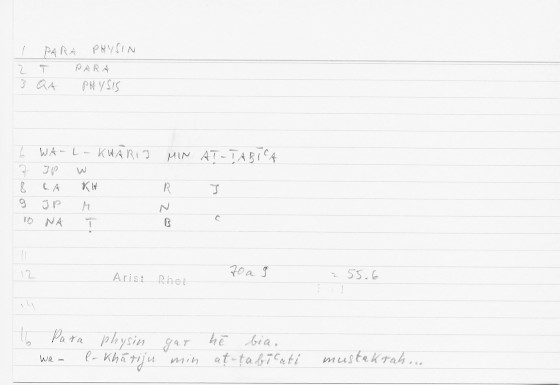 1 PARA PHYSIN
2 T PARA
3 QA PHYSIS
6 WA-L-KHĀRIJ MIN AṬ-ṬABĪʿA
7 JP W
8 LA KH R J
9 JP M N
10 NA Ṭ B ʿ
11
12 Arist Rhet 70a9 = 55.6
16 Para physin gar hē bia.
wa-l-khāriju min aṭ-ṭabīʿati mustakrah...